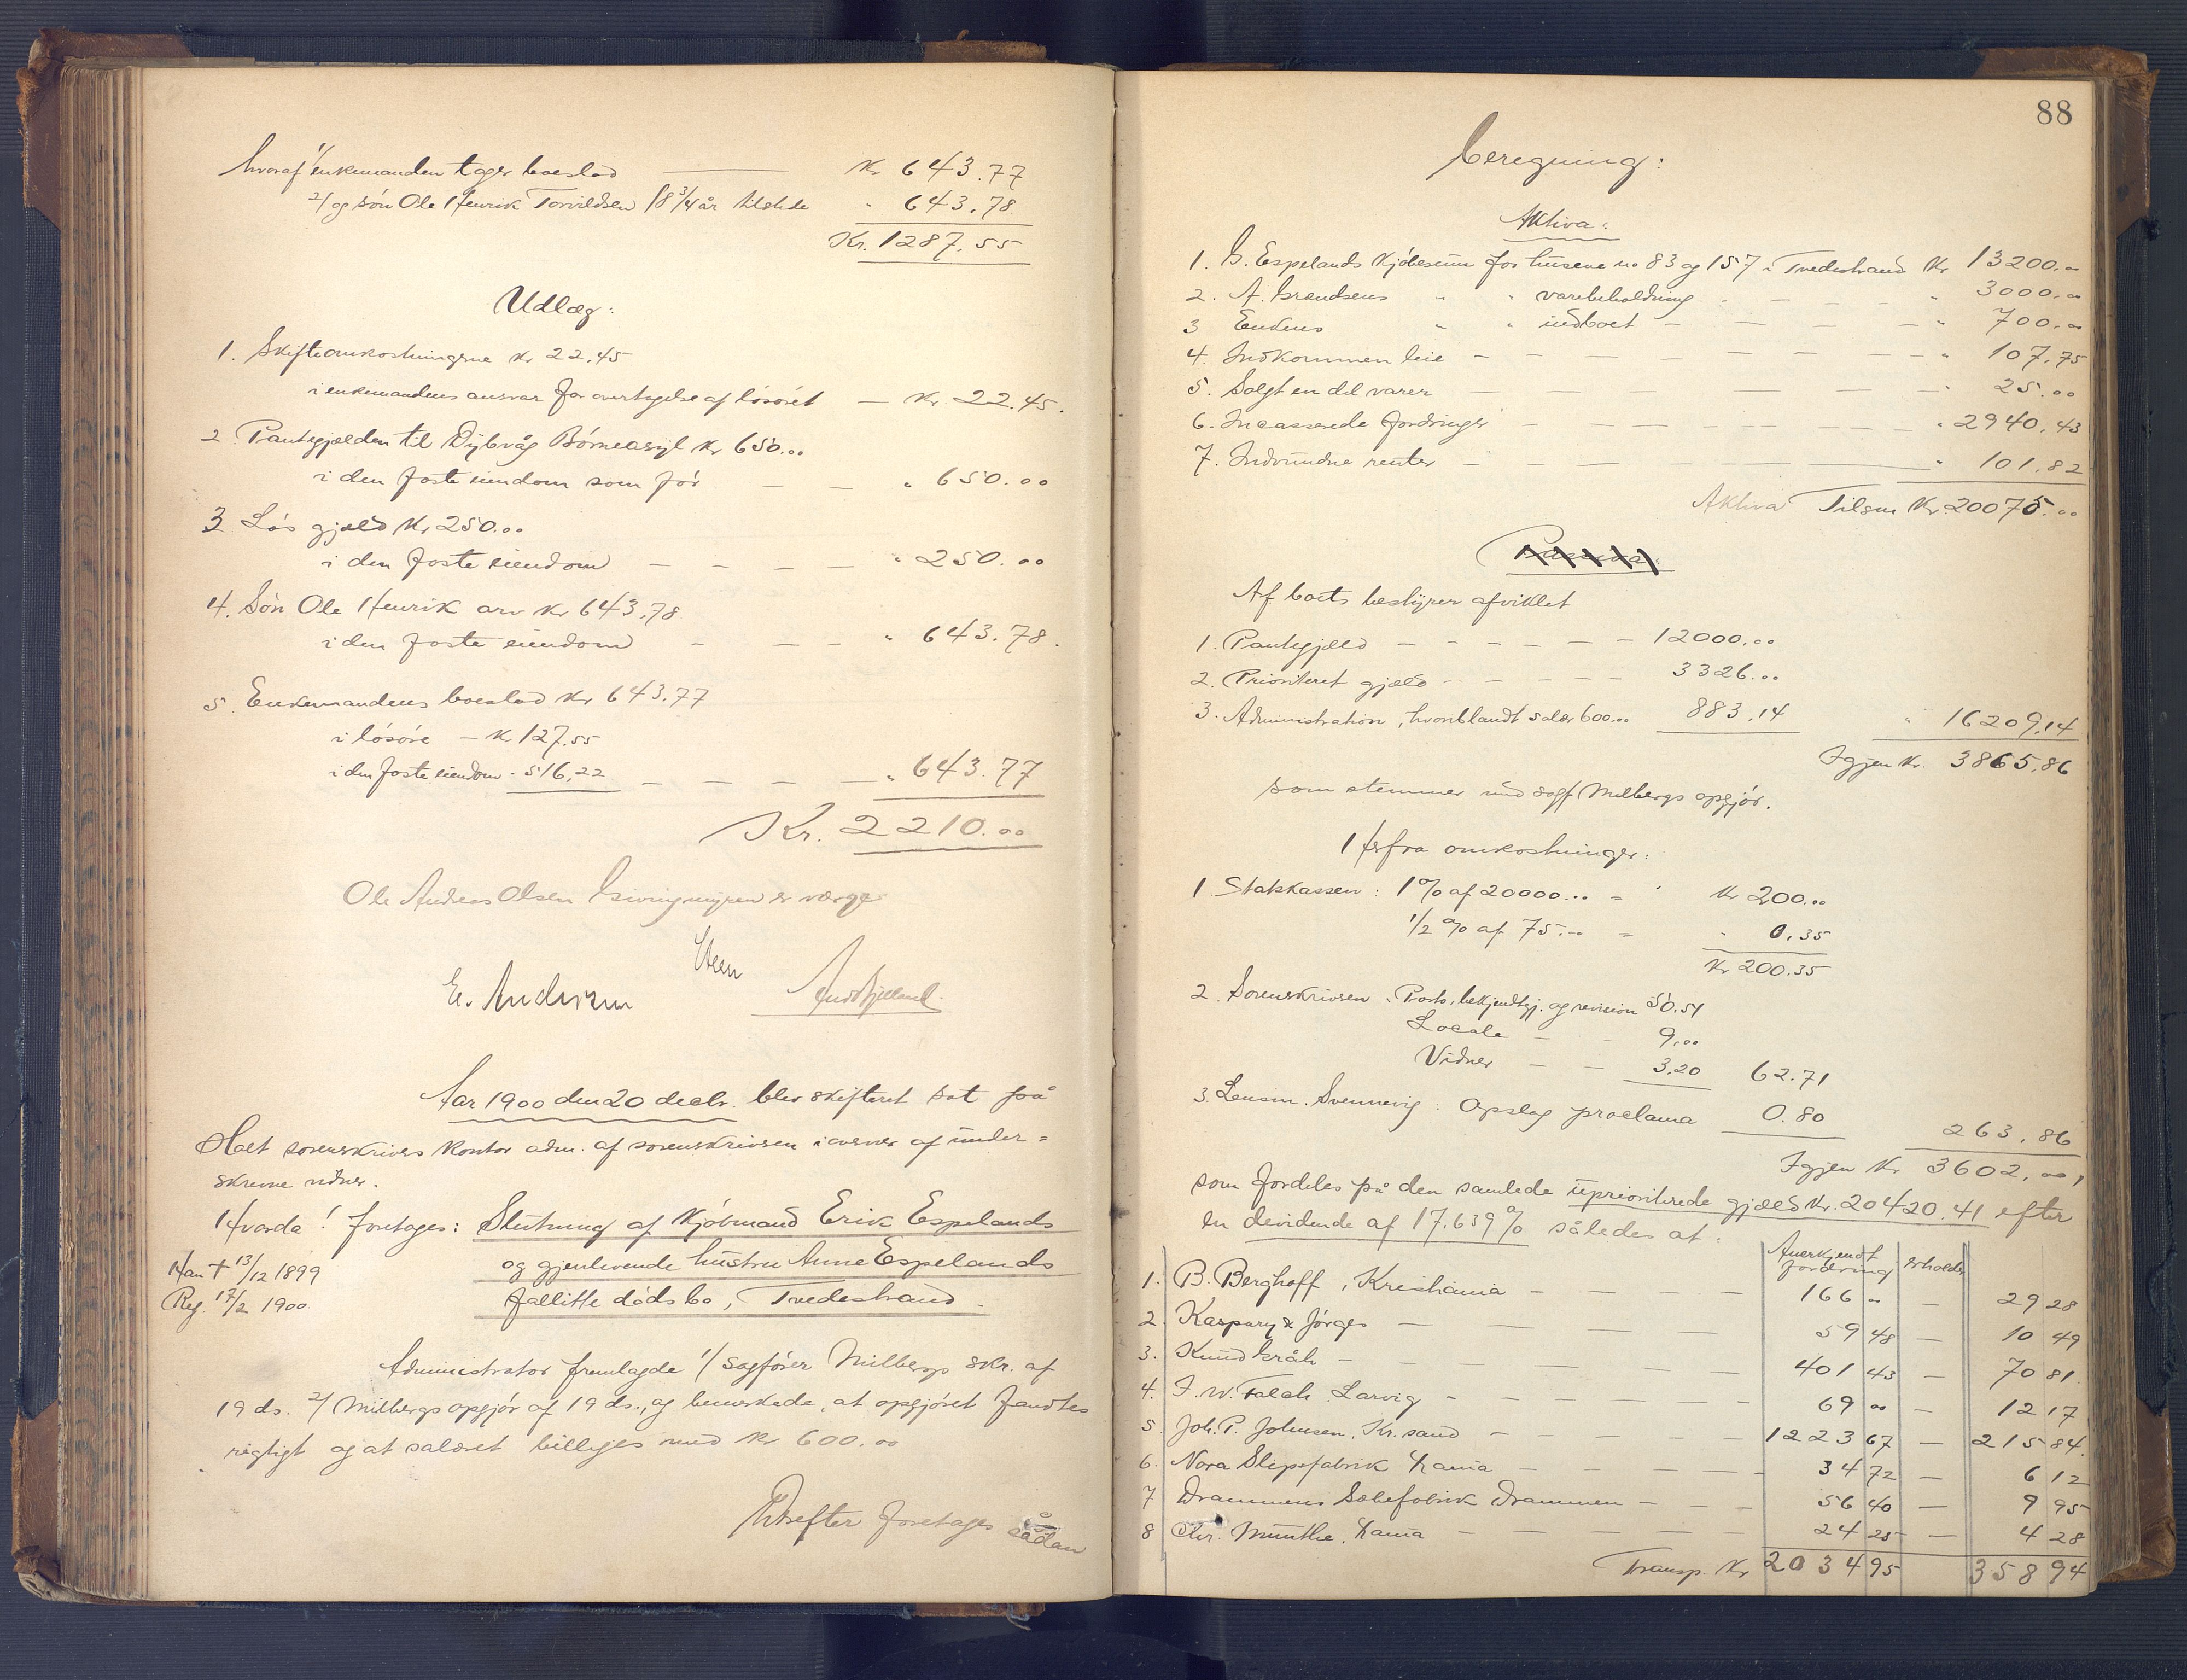 hvoraf 1/ enkemanden tager boeslod — Kr 643.77
2/ og søn Ole Henrik Torvildsen 18 3/4 år tilstede " 643.78
Kr. 1287.55
Udlæg:
1. Skifteomkostningerne Kr 22.45
i enkemandens ansvar for overtagelse af løsøret — Kr. 22.45.
2. Pantegjælden til Dybvåg Børneasyl Kr 650...
i den faste eiendom som før — — " 650.00
3. Løs gjæld Kr 250.00
i den faste eiendom — — — — " 250.00
4. Søn Ole Henrik arv Kr 643,78
i den faste eiendom - — — " 643.78.
5. Enkemandens boeslod Kr 643.77
i løsøre — Kr 127.55
i den faste eiendom - 516,22 — — — — " 643.77
Kr. 2210.00
Ole Andreas Olsen er værge
Steen
E. Andersen
Aar 1900 den 20 decbr. blev skifteret sat på
Holt sorenskrivers kontor adm. af sorenskriveren i overvær af under=
skrevne vidner.
Hvorda! foretages: Slutning af Kjøbmand Erik Espelands
og gjenlevende hustru Anne Espelands
fallitte dødsbo, Tvedestrand.
Han † 13/12 1899
Reg. 17/2 1900.
Administrator fremlagde 1/ sagfører Milbergs skr. af
19 ds. 2/ Milbergs opgjør af 19 ds., og bemærkede, at opgjøret fandtes
rigtigt og at salæret billiges med Kr 600.00
Derefter foretages sådan
88
beregning:
Aktiva:
1. G. Espelands kjøbesum for husene no 83 og 157 i Tvedestrand Kr 13200.00
2. A. Grendsens " " varebeholdning - — — — " 3000.00
3 Enkens " " indboet — — — — " 700.00
4. Indkommen leie — — — — — — — " 107,75
5. Solgt en del varer — — — — — " 25.00
6. Incasserede fordringer — — — — — — " 2940.43
7. Indvundne renter — — — — — " 101.82
Aktiva Tilsm Kr. 20075.00
Af boets bestyrer afviklet
1. Pantegjæld — — — — — — 12000.00
2. Prioriteret gjæld — — — — — 3326.00
3. Administration, hvoriblandt salær 600... 883.14 " 16209,14
Igjen Kr. 3865,86
som stemmer med sagf. Milbergs opgjør.
Herfra omkostninger:
1 Statskassen: 1% af 20000... = Kr 200...
1/2 % af 75.00 = " 0.35
Kr 200.35
2. Sorenskriveren. Porto, bekjendtgj. og revision 50.51
Locale — - 9.00
Vidner — — 3.20 62.71
3. Lensm. Svennevig: Opslag proclama 0.80
263,86
Igjen Kr 3602,00,
som fordeles på den samlede uprioriterede gjæld Kr. 20420.41 efter
en dividende af 17.639% således at:
Anerkjendt fordring erholder
1. B. Berghoff, Kristiania — — — — 166 00 — 29 28
2. Kaspary & Jørges — — — — 59 48 — 10 49
3. Knud Kråh — — — — — 401 43 — 70 81.
4. F. W. Falch. Larvig - — — — — — 69 00 — 12 17
5. Joh. P. Johnsen, Kr.sand — — — — — 1223 67 — 215 84.
6. Nora Slipsfabrik Xania — — — — — 34 72 — 6 12
7 Drammens Sæbefabrik Drammen — — — 56 40 — 9 95
8 Chr. Munthe. Xania — — — 24 25 — 4 28
Transp. Kr 2034 95 358 94